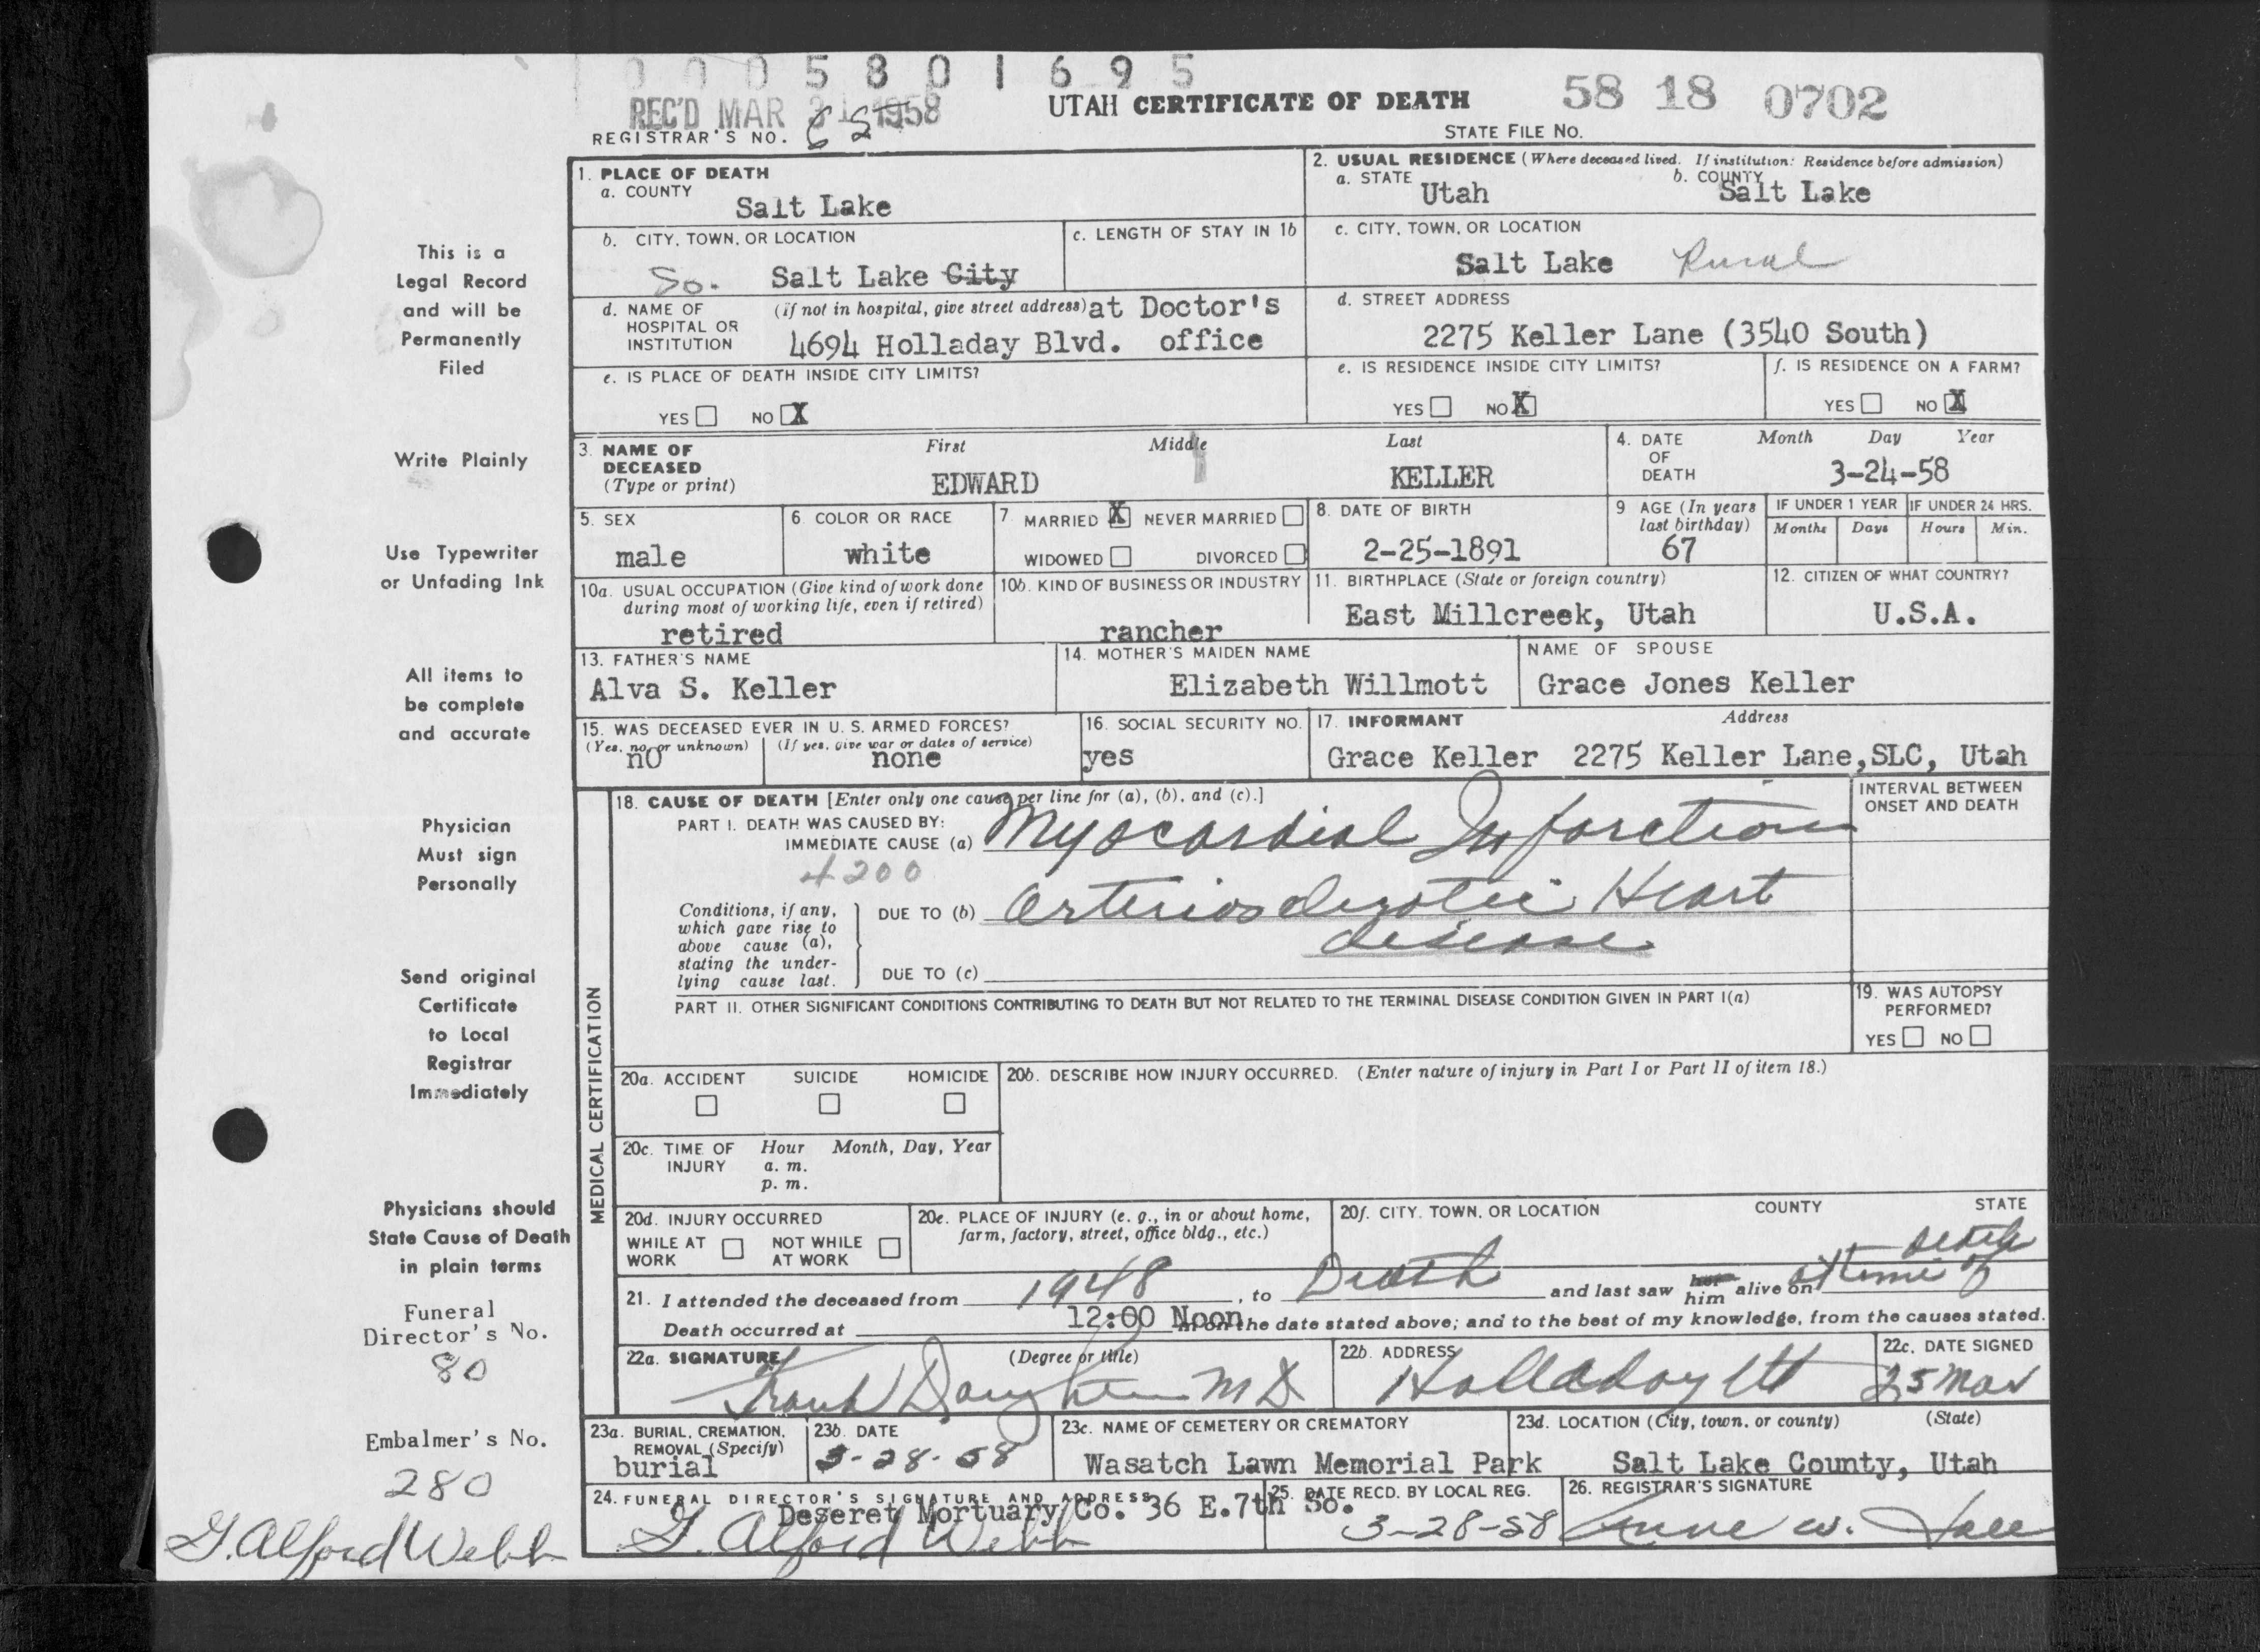 0 0 0 5 8 0 1 6 9 5
REC'D MAR 31 1958
UTAH CERTIFICATE OF DEATH
58 18 0702
REGISTRAR'S NO.
STATE FILE NO.
1. PLACE OF DEATH
a. COUNTY
Salt Lake
2. USUAL RESIDENCE (Where deceased lived. If institution: Residence before admission)
a. STATE
Utah
b. COUNTY
Salt Lake
b. CITY, TOWN, OR LOCATION
So. Salt Lake City
c. LENGTH OF STAY IN 1b
c. CITY, TOWN, OR LOCATION
Salt Lake Rural
d. NAME OF HOSPITAL OR INSTITUTION
(if not in hospital, give street address) at Doctor's
4694 Holladay Blvd. office
d. STREET ADDRESS
2275 Keller Lane (3540 South)
e. IS PLACE OF DEATH INSIDE CITY LIMITS?
YES NO X
e. IS RESIDENCE INSIDE CITY LIMITS?
YES NO X
f. IS RESIDENCE ON A FARM?
YES NO X
3. NAME OF DECEASED
(Type or print)
First Middle Last
EDWARD KELLER
4. DATE OF DEATH
Month Day Year
3-24-58
5. SEX
male
6 COLOR OR RACE
white
7 MARRIED X NEVER MARRIED
WIDOWED DIVORCED
8. DATE OF BIRTH
2-25-1891
9 AGE (In years last birthday)
67
IF UNDER 1 YEAR
Months Days
IF UNDER 24 HRS.
Hours Min.
10a. USUAL OCCUPATION (Give kind of work done during most of working life, even if retired)
retired
10b. KIND OF BUSINESS OR INDUSTRY
rancher
11. BIRTHPLACE (State or foreign country)
East Millcreek, Utah
12. CITIZEN OF WHAT COUNTRY?
U.S.A.
13. FATHER'S NAME
Alva S. Keller
14. MOTHER'S MAIDEN NAME
Elizabeth Willmott
NAME OF SPOUSE
Grace Jones Keller
15. WAS DECEASED EVER IN U. S. ARMED FORCES?
(Yes, no, or unknown) (If yes, give war or dates of service)
no none
16. SOCIAL SECURITY NO.
yes
17. INFORMANT Address
Grace Keller 2275 Keller Lane,SLC, Utah
MEDICAL CERTIFICATION
18. CAUSE OF DEATH [Enter only one cause per line for (a), (b), and (c).]
PART I. DEATH WAS CAUSED BY:
IMMEDIATE CAUSE (a) Myocardial Infarction
4200
Conditions, if any, which gave rise to above cause (a), stating the underlying cause last.
DUE TO (b) Arteriosclerotic Heart
disease
DUE TO (c)
INTERVAL BETWEEN ONSET AND DEATH
PART II. OTHER SIGNIFICANT CONDITIONS CONTRIBUTING TO DEATH BUT NOT RELATED TO THE TERMINAL DISEASE CONDITION GIVEN IN PART I(a)
19. WAS AUTOPSY PERFORMED?
YES NO
20a. ACCIDENT SUICIDE HOMICIDE
20b. DESCRIBE HOW INJURY OCCURRED. (Enter nature of injury in Part I or Part II of item 18.)
20c. TIME OF INJURY
Hour Month, Day, Year
a. m.
p. m.
20d. INJURY OCCURRED
WHILE AT WORK NOT WHILE AT WORK
20e. PLACE OF INJURY (e. g., in or about home, farm, factory, street, office bldg., etc.)
20f. CITY, TOWN, OR LOCATION COUNTY STATE
21. I attended the deceased from 1948, to Death and last saw her him alive on at time of death
Death occurred at 12:00 Noon m on the date stated above; and to the best of my knowledge, from the causes stated.
22a. SIGNATURE (Degree or title)
Frank MD
22b. ADDRESS
Holladay Ut
22c. DATE SIGNED
25 Mar
23a. BURIAL, CREMATION, REMOVAL (Specify)
burial
23b. DATE
3-28-58
23c. NAME OF CEMETERY OR CREMATORY
Wasatch Lawn Memorial Park
23d. LOCATION (City, town, or county) (State)
Salt Lake County, Utah
24. FUNERAL DIRECTOR'S SIGNATURE AND ADDRESS
Deseret Mortuary Co. 36 E.7th So.
G. Alford Webb
25. DATE RECD. BY LOCAL REG.
3-28-58
26. REGISTRAR'S SIGNATURE
Anne W.
This is a
Legal Record
and will be
Permanently
Filed
Write Plainly
Use Typewriter
or Unfading Ink
All items to
be complete
and accurate
Physician
Must sign
Personally
Send original
Certificate
to Local
Registrar
Immediately
Physicians should
State Cause of Death
in plain terms
Funeral
Director's No.
80
Embalmer's No.
280
G. Alford Webb